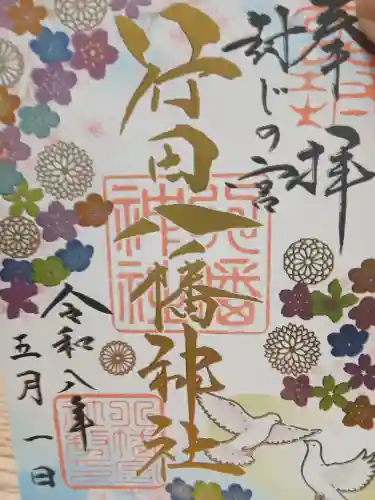 奉拝
封じの宮
行田八幡神社
八幡神社
令和八年
五月一日